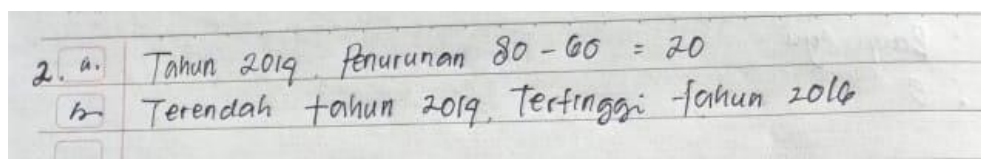 2. a. Tahun 2019. Penurunan 80 - 60 = 20
b Terendah tahun 2019, Tertinggi tahun 2016